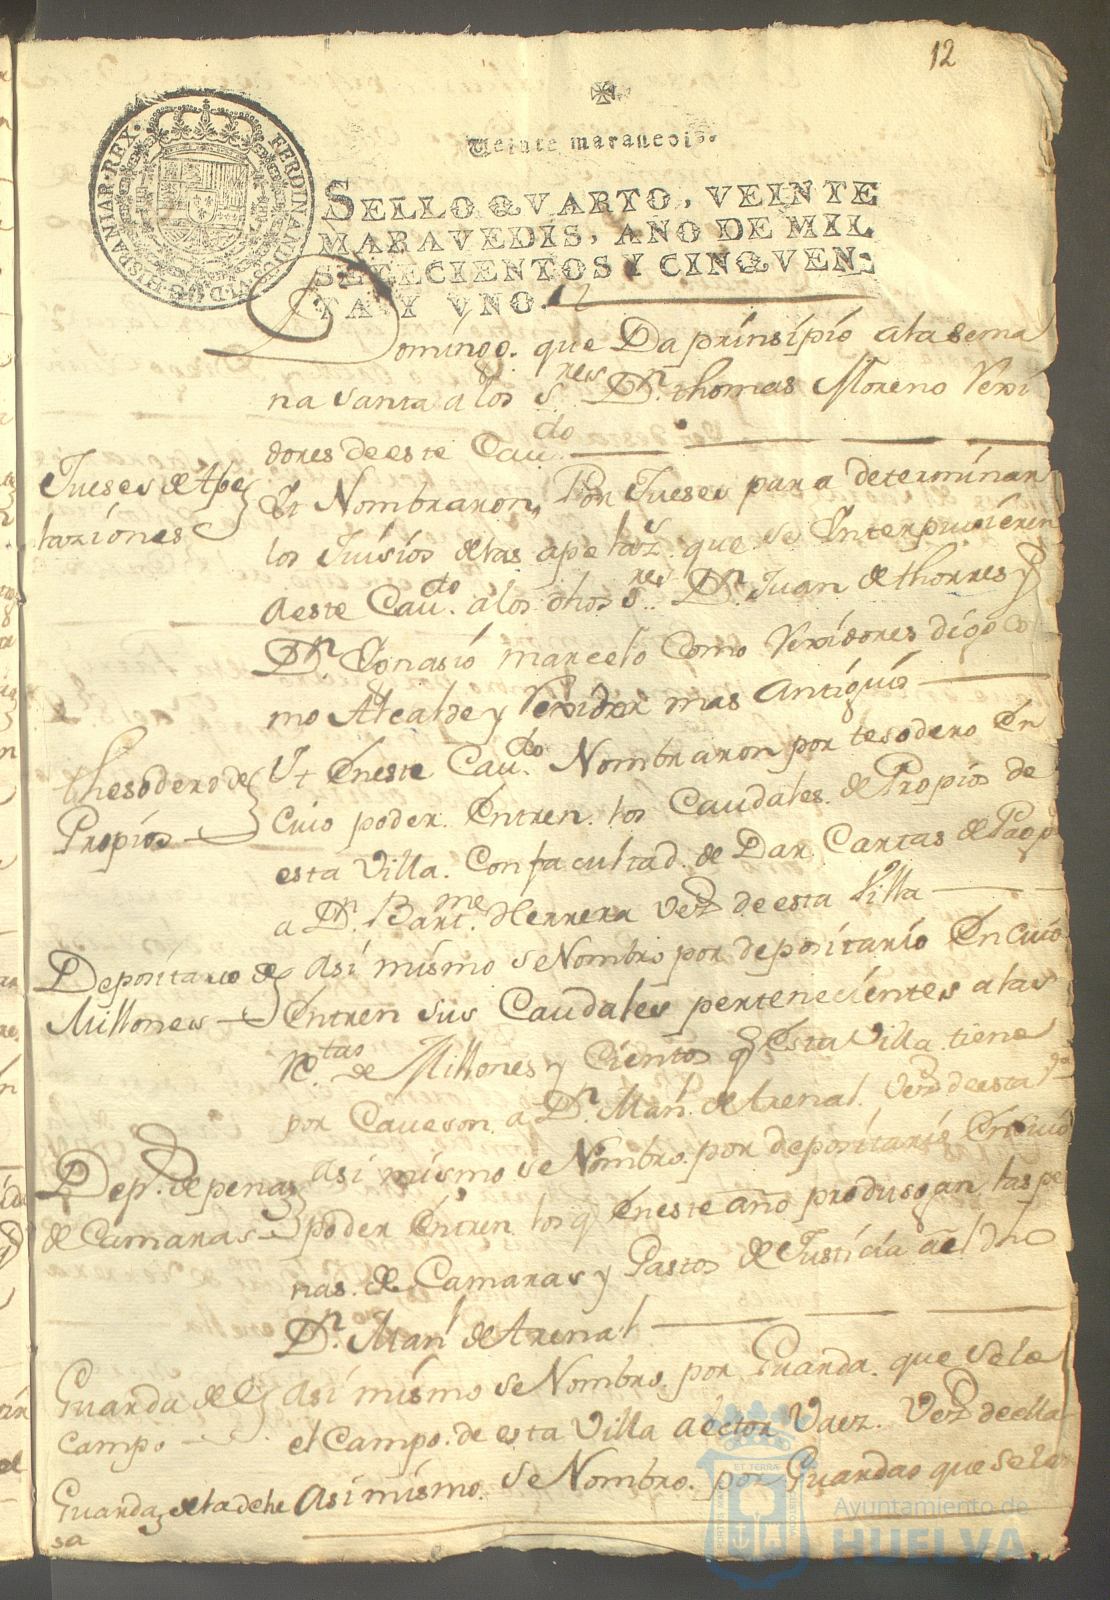 12
Veinte maravedis.
FERDINANDUS·VI·D·G·HISPANIAR·REX·
SELLO QVARTO, VEINTE
MARAVEDIS, AÑO DE MIL
SETECIENTOS Y CINQVEN-
TA Y VNO.
Domingo. que Da prinsipio ala sema
na santa a los s.res D.n thomas Moreno Rexi
dores de este Cau.do
Jueses de Ape
laziones
Nombraron, Por Jueses para determinar
los Juisios de las apelaz.s que se Interpusieren
a este Cau.do a los dhos s.res D.n Juan de thorres y
D.n Ygnasio marcelo Como Rexidores digo Co
mo Alcalde y Rexidor mas Antiguo
thesodero de
Propios
Yt En este Cau.do Nombraron por tesodero En
Cuio poder. Entren. los Caudales. de Propios de
esta Villa. Con facultad. de Dar Cartas de Pago
a D.n Bart.me Herrera Vez.o de esta Villa
Depositario de
Millones
Asi mismo se Nombro por depositario En cuio
Entren sus Caudales pertenecientes a las
R.tas de Millones y Cientos q Esta Villa. tiene
por Caveson. a D.n Man.l de Arenal. Vez.o de esta V.a
Dep.o de penas
de Camaras
Asi mismo se Nombro. por depositario En Cuio
poder Entren los q En este año produsgan las pe
nas. de Camaras y Gastos de Justicia a el dho
D.n Man.l de Arenal
Guarda de el
Campo
Asi mismo se Nombro. por Guarda. que sele
el Campo. de esta Villa a ector Vaez. Vez.o de ella
Guarda de la dehe
sa
Asi mismo. se Nombro. por Guardao que sela
Ayuntamiento de
HUELVA